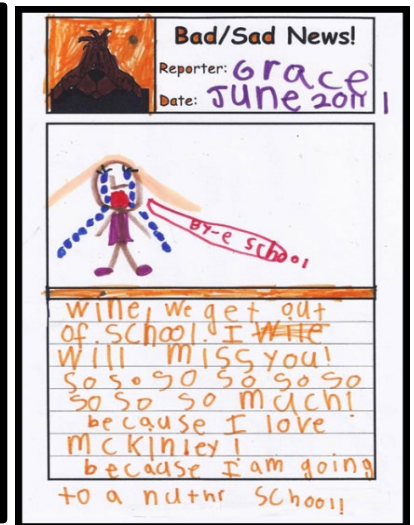 Bad/Sad News!
Reporter: Grace
Date: June 2011
BY-e School
wine, we get out
of school. I
will miss you!
so so so so so so
so so so much!
because I love
mckinley!
because I am going
to a nuthr School!